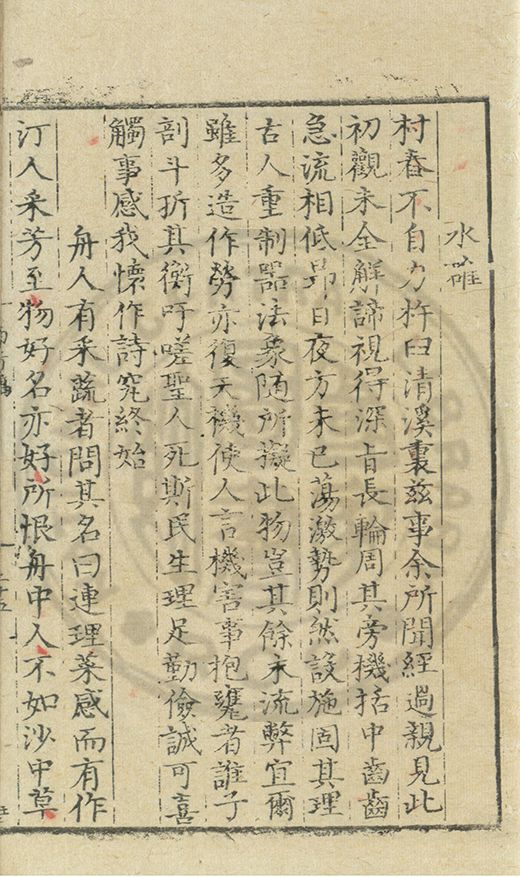 水碓
村舂不自力杵臼清溪裏茲事余所聞經過親見此
初觀未全解諦視得深旨長輪周其旁機括中齒齒
急流相低昂日夜方未已蕩激勢則然設施固其理
古人重制器法象隨所擬此物豈其餘末流弊宜爾
雖多造作勞亦復天機使人言機害事抱甕者誰子
剖斗折其衡吁嗟聖人死斯民生理足勤儉誠可喜
觸事感我懷作詩究終始
舟人有采蔬者問其名曰連理菜感而有作
汀人采芳至物好名亦好所恨舟中人不如沙中草